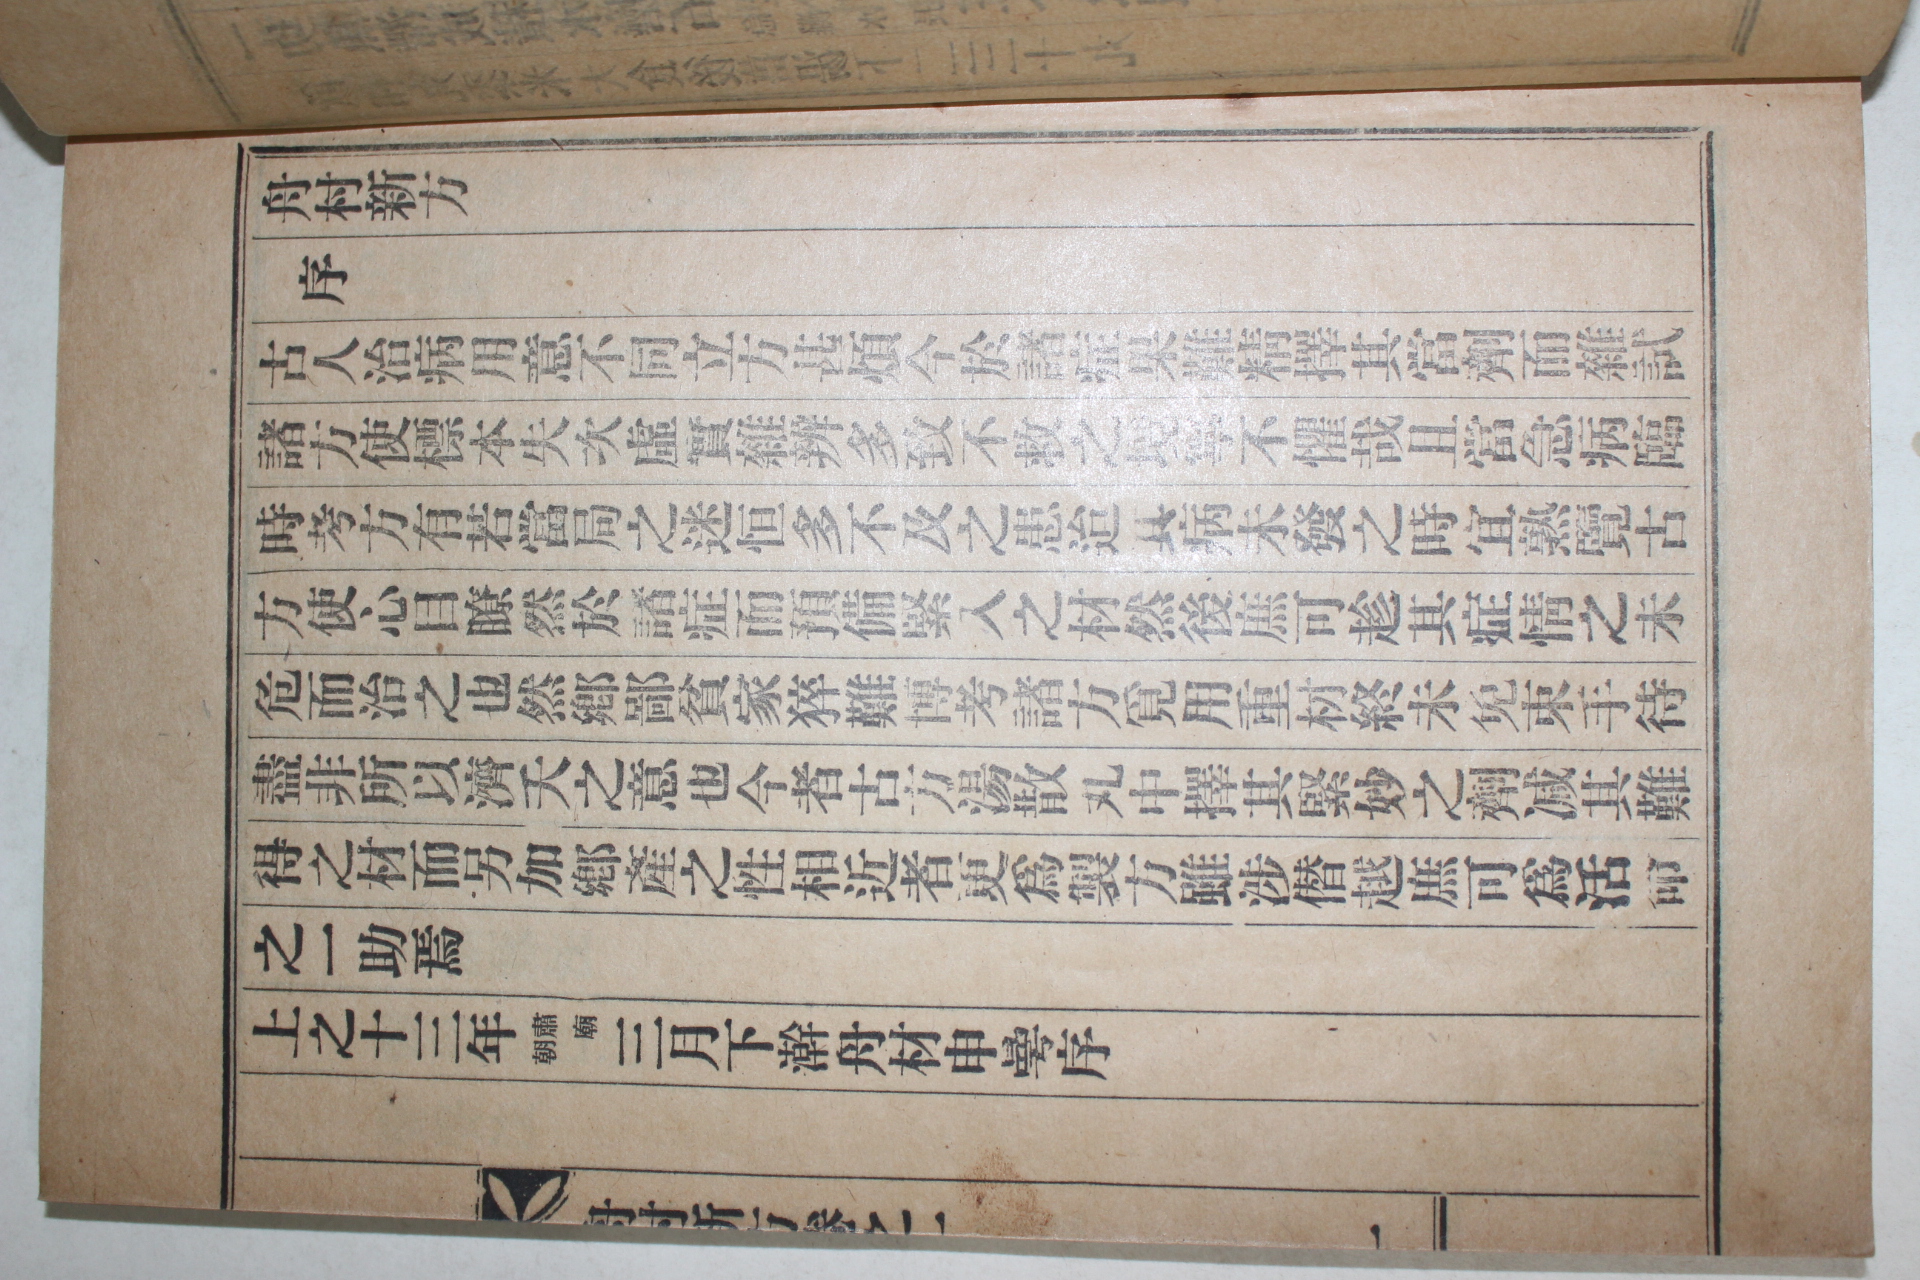 舟村新方
序
古人治病用意不同立方也煩今於諸症果難精擇其當劑而雜試
諸方使標本失次虛實難辨多致不救之境豈不懼哉且當急病臨
時考方有若當局之迷但多不及之患迨其病未發之時宜熟覽古
方使心目瞭然於諸症而預備緊入之材然後庶可趁其症情之未
危而治之也然鄕鄙貧家猝難博考諸方覓用重材終未免束手待
盡非所以濟夭之意也今者古方湯散丸中擇其緊妙之劑減其難
得之材而另加鄕產之性相近者更爲製方雖涉僭越庶可爲活命
之一助焉
上之十三年肅廟朝三月下澣舟村申曼序
舟村新方卷之一
一